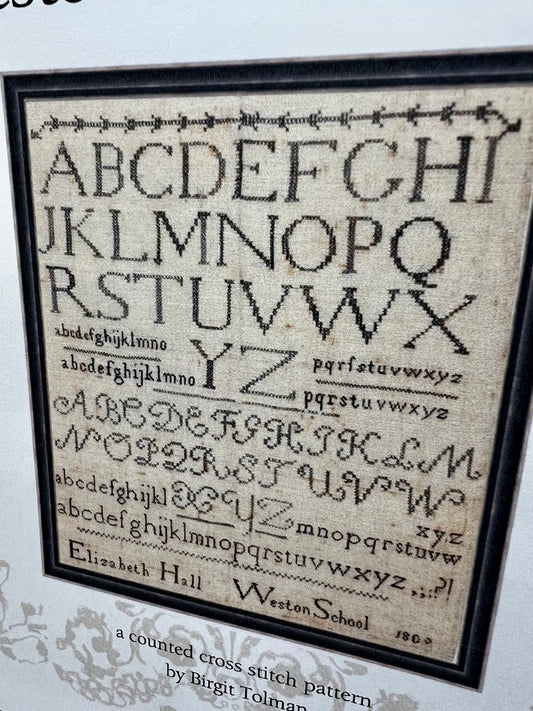 ABCDEFGHI
JKLMNOPQ
RSTUVWX
abcdefghijklmno YZ pqrſstuvwxyz
abcdefghijklmno pqrstuvwxyz
ABCDEFGHIJKLM
NOPQRSTUVW
abcdefghijkl XYZ mnopqrstuvw xyz
abcdefghijklmnopqrstuvwxyz,;:?!
Elizabeth Hall Weston School
a counted cross stitch pattern
by Birgit Tolman